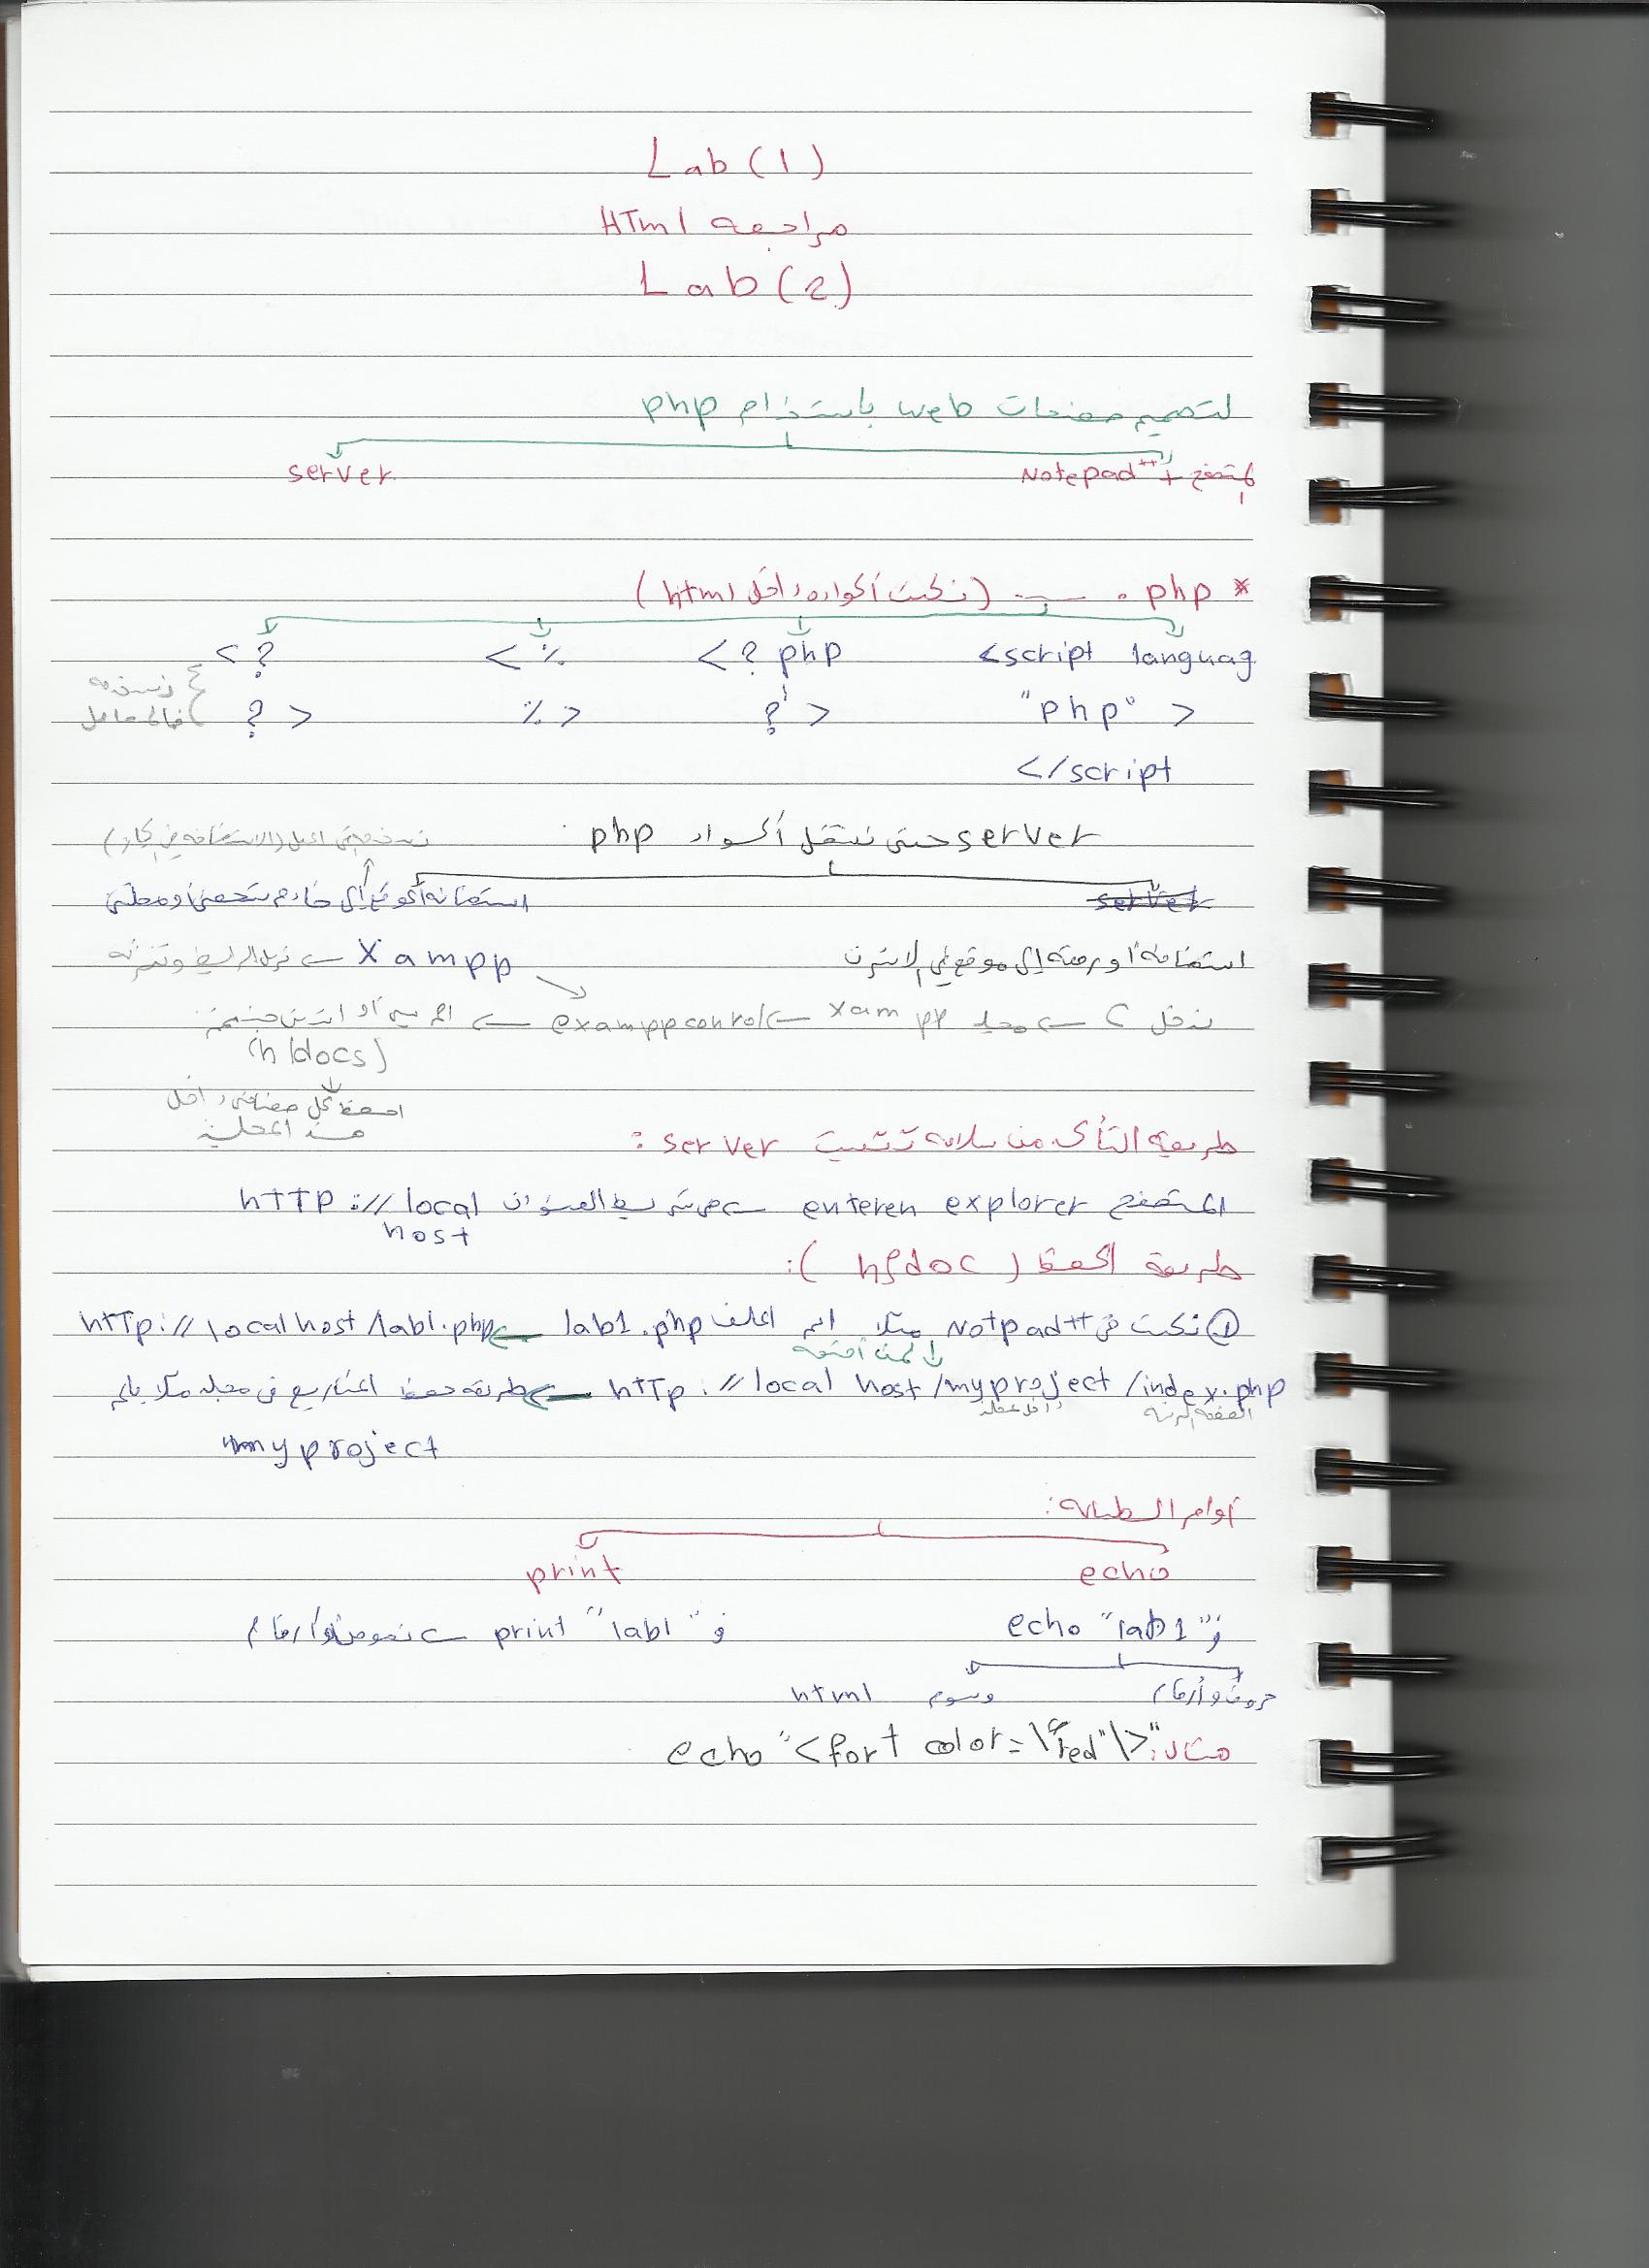 Lab (1)
مراجعه HTml
Lab (2)
لتصميم صفحات web باستخدام php
المتصفح + Notepad++ server
* php . (نكتب أكواده داخل html)
<script languag <? php <% <?
"php" > ? > % > ? >
نستخدمه
</script
server حتى نتنقل أكواد php
استضافة أو رفعه إلى موقع في الانترنت
Xampp
ندخل C ← مجلد xampp ← exampp conrol ←
(h/docs)
احفظ كل صفحاتي داخل
هذا المجلد
طريقة التأكد من سلامة تثبيت server :
المتصفح enteren explorer ← شريط العنوان hTTP :// local
host
طريقة الحفظ ( hfdoc ):
① نكتب في Notpad++ مثلا اسم الملف lab1.php ← hTTp://localhost/lab1.php
hTTp://local host/myproject/index.php ← طريقة حفظ المشاريع في مجلد مثلا باسم
myproject
أوامر الطباعه:
echo print
echo "lab1"; print "lab1"; ← نصوص أو أرقام
حروف وأرقام وسوم html
مثال: echo "<font color=\"red"\>"